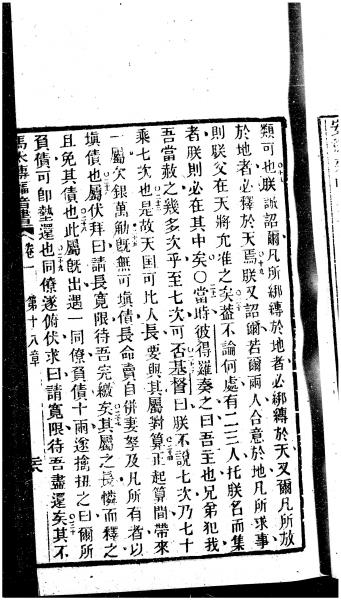 類可也朕誠詔爾凡所綁縛於地者必綁縛於天又爾凡所放
於地者必釋於天焉朕又詔爾若爾兩人合意於地凡所求事
則朕父在天將允准之矣蓋不論何處有二三人托朕名而集
者朕則必在其中矣〇當時彼得羅奏之曰吾主也兄弟犯我
吾當赦之幾多次乎至七次可否基督曰朕不說七次乃七十
乘七次也是故天国可比人長要與其屬對算正起算間帶來
一屬欠銀萬勒旣無可塡債長命賣自併妻孥及凡所有者以
塡債也屬伏拜曰請長寬限待吾完繳矣其屬之長憐而釋之
且免其債也此屬旣出遇一同僚負債十兩途擒扭之曰爾所
負債可卽墊還也同僚遂俯伏求曰請寬限待吾盡還矣其不
馬太傳福音書 卷一 第十八章